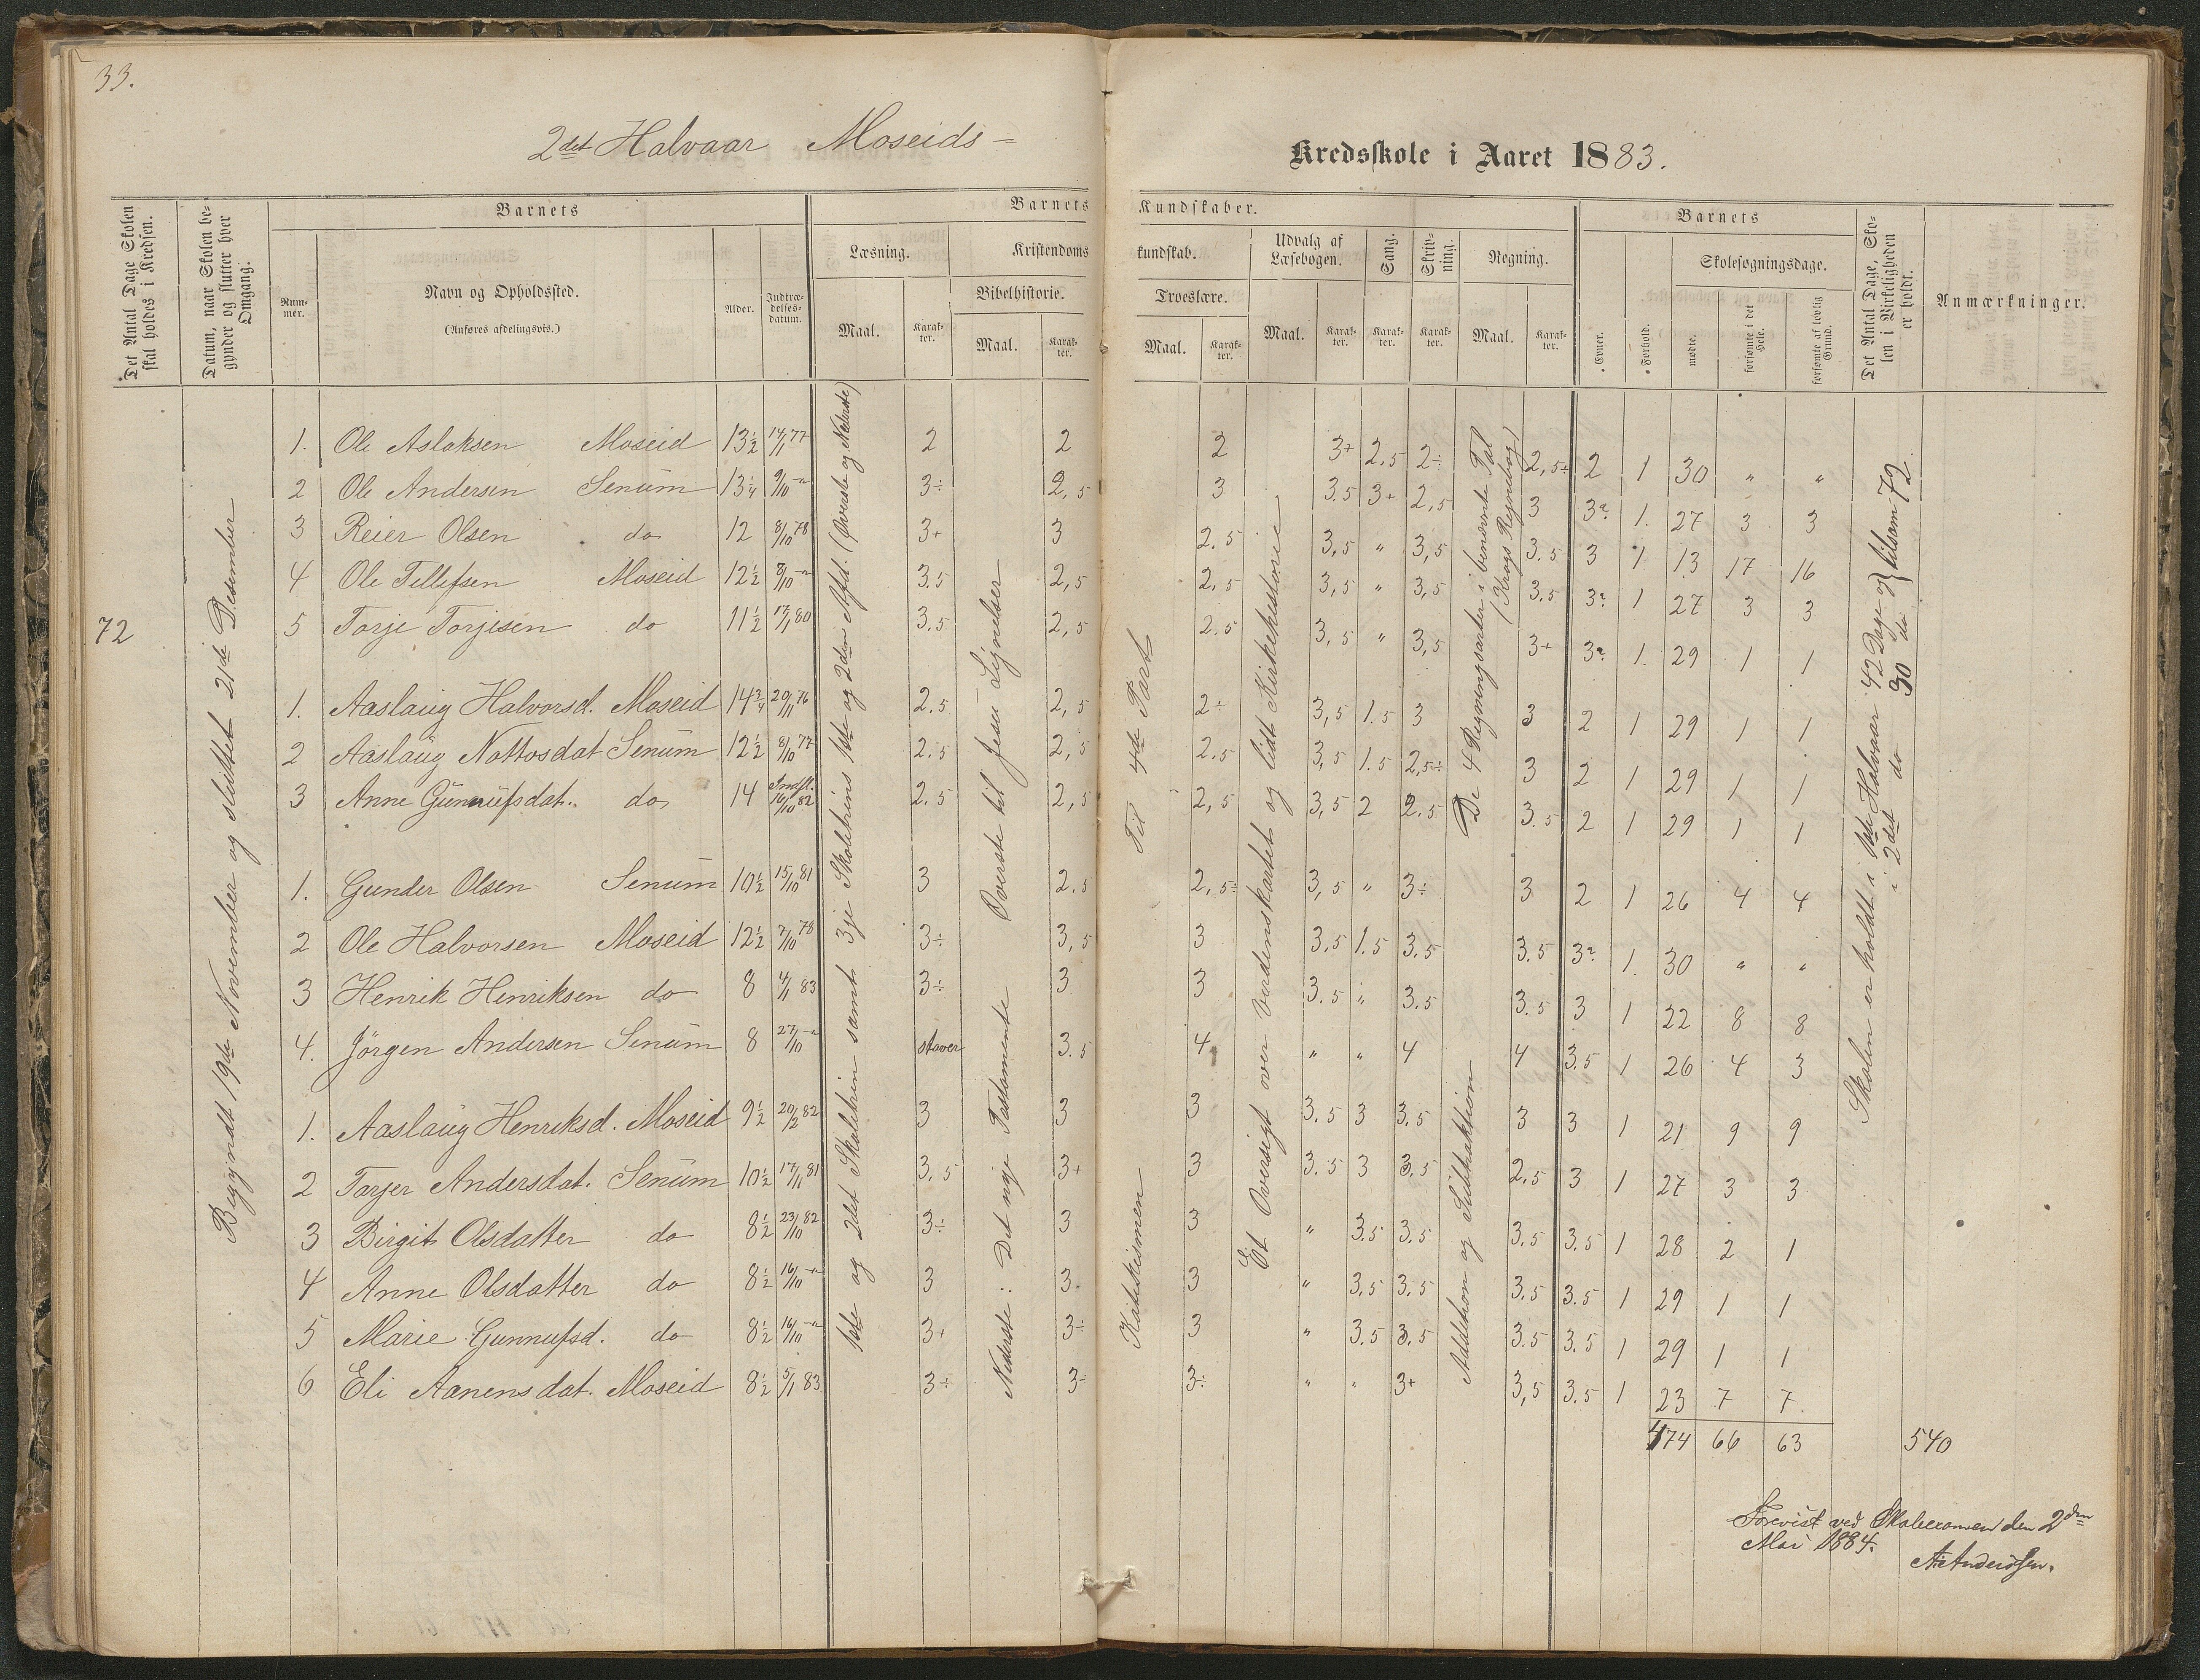 33.
2det Halvaar Moseids-
Kredsskole i Aaret 1883.
Det Antal Dage Skolen skal holdes i Kredsen.
Datum, naar Skolen begynder og slutter hver Omgang.
Barnets
Num-mer.
Navn og Opholdssted.
(Anføres afdelingsvis.)
Alder.
Indtræ-delses-datum.
Barnets Kundskaber.
Læsning.
Maal.
Karak-ter.
Kristendomskundskab.
Bibelhistorie.
Maal.
Karak-ter.
Troeslære.
Maal.
Karak-ter.
Udvalg af Læsebogen.
Maal.
Karak-ter.
Sang.
Karak-ter.
Skriv-ning.
Karak-ter.
Regning.
Maal.
Karak-ter.
Barnets
Evner.
Forhold.
Skolesøgningsdage.
mødte.
forsømte i det Hele.
forsømte af lovlig Grund.
Det Antal Dage, Skolen i Virkeligheden er holdt.
Anmærkninger.
72
Begyndt 19de November og sluttet 21de Desember
1ste og 2det Skoletrin samt 3je Skoletrins 1ste og 2den Afd. (Øverste og Nederste)
Nederste: Det nye Testamente Øverste til Jesu Lignelser
Katekismen Til 4de Part
Et Oversigt over Verdenskartet og lidt Kirkehistorie
Addition og Subtraktion De 4 Regningsarter i benævnte Tal
(Krogs Regnebog)
Skolen er holdt i 1ste Halvaar 42 Dage og
i 2det do 30 do } tilsam 72.
1. Ole Aslaksen Moseid 13½ 14/1 77 2 2 2 3+ 2,5 2÷ 2,5÷ 2 1 30 " "
2 Ole Andersen Senum 13¼ 9/10 –"– 3÷ 2,5 3 3.5 3+ 2,5 3 3? 1. 27 3 3
3 Reier Olsen do 12 8/10 78 3+ 3 2.5 3,5 " 3,5 3.5 3 1 13 17 16
4 Ole Tellefsen Moseid 12½ 8/10 –"– 3.5 2,5 2,5 3,5 " 3,5 3.5 3? 1 27 3 3
5 Torje Torjisen do 11½ 17/1 80 3.5 2,5 2.5 3,5 " 3,5 3+ 3? 1. 29 1 1
1. Aaslaug Halvorsd. Moseid 14¾ 20/11 76 2.5 2,5 2÷ 3,5 1.5 3 3 2 1 29 1 1
2 Aaslaug Nottosdat Senum 12½ 8/10 77 2.5 2,5 2.5 3,5 1.5 2,5÷ 3 2 1 29 1 1
3 Anne Gunnufsdat. do 14 Indfl. 16/10 82 2.5 2,5 2,5 3,5 2 2.5 3.5 2 1 29 1 1
1. Gunder Olsen Senum 10½ 15/10 81 3 2.5 2,5÷ 3,5 " 3÷ 3 2 1 26 4 4
2 Ole Halvorsen Moseid 12½ 7/10 78 3÷ 3,5 3 3.5 1.5 3.5 3.5 3? 1. 30 " "
3 Henrik Henriksen do 8 4/1 83 3÷ 3 3 3.5 " 3.5 3.5 3 1 22 8 8
4. Jörgen Andersen Senum 8 27/10 –"– staver 3.5 4 " " 4 4 3.5 1 26 4 3
1. Aaslaug Henriksd. Moseid 9½ 20/2 82 3 3 3 3.5 3 3.5 3 3 1 21 9 9
2 Torjer Andersdat. Senum 10½ 17/11 81 3.5 3+ 3 3.5 3 3.5 2,5 3 1 27 3 3
3 Birgit Olsdatter do 8½ 23/10 82 3÷ 3 3 " 3.5 3.5 3.5 3.5 1 28 2 1
4 Anne Olsdatter do 8½ 16/10 –"– 3 3. 3 " 3,5 3.5 3.5 3.5 1 29 1 1
5 Marie Gunnufsd. do 8½ 16/10 –"– 3+ 3÷ 3 " 3.5 3.5 3.5 3.5 1 29 1 1
6 Eli Aanensdat. Moseid 8½ 5/1 83 3÷ 3÷ 3÷ " " 3+ 3,5 3.5 1 23 7 7
474 66 63 540
Forevist ved Skoleexamen den 2den
Mai 1884.
A. Anderssen.